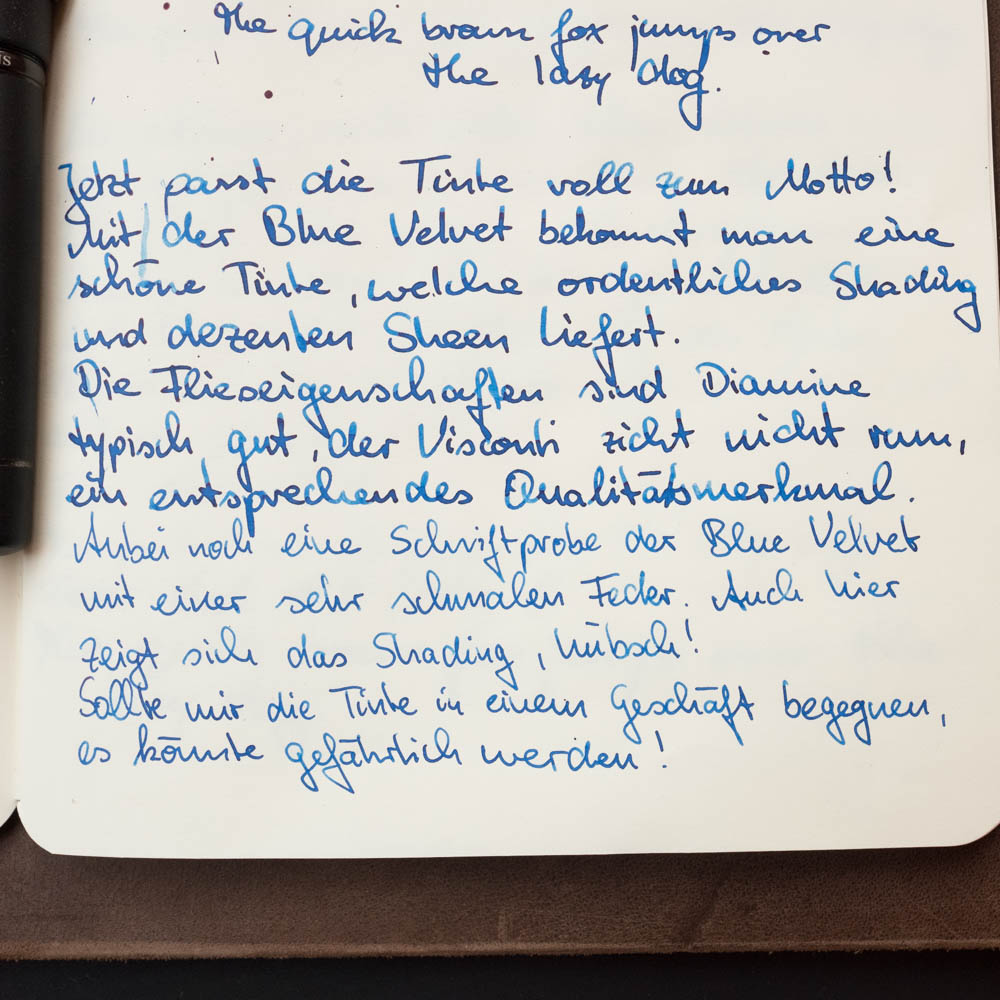 the quick brown fox jumps over
the lazy dog.
Jetzt passt die Tinte voll zum Motto!
Mit der Blue Velvet bekommt man eine
schöne Tinte, welche ordentliches Shading
und dezenten Sheen liefert.
Die Flieseigenschaften sind Diamine
typisch gut, der Visconti zickt nicht rum,
ein entsprechendes Qualitätsmerkmal.
Anbei noch eine Schriftprobe der Blue Velvet
mit einer sehr schmalen Feder. Auch hier
zeigt sich das Shading, hübsch!
Sollte mir die Tinte in einem Geschäft begegnen,
es könnte gefährlich werden!